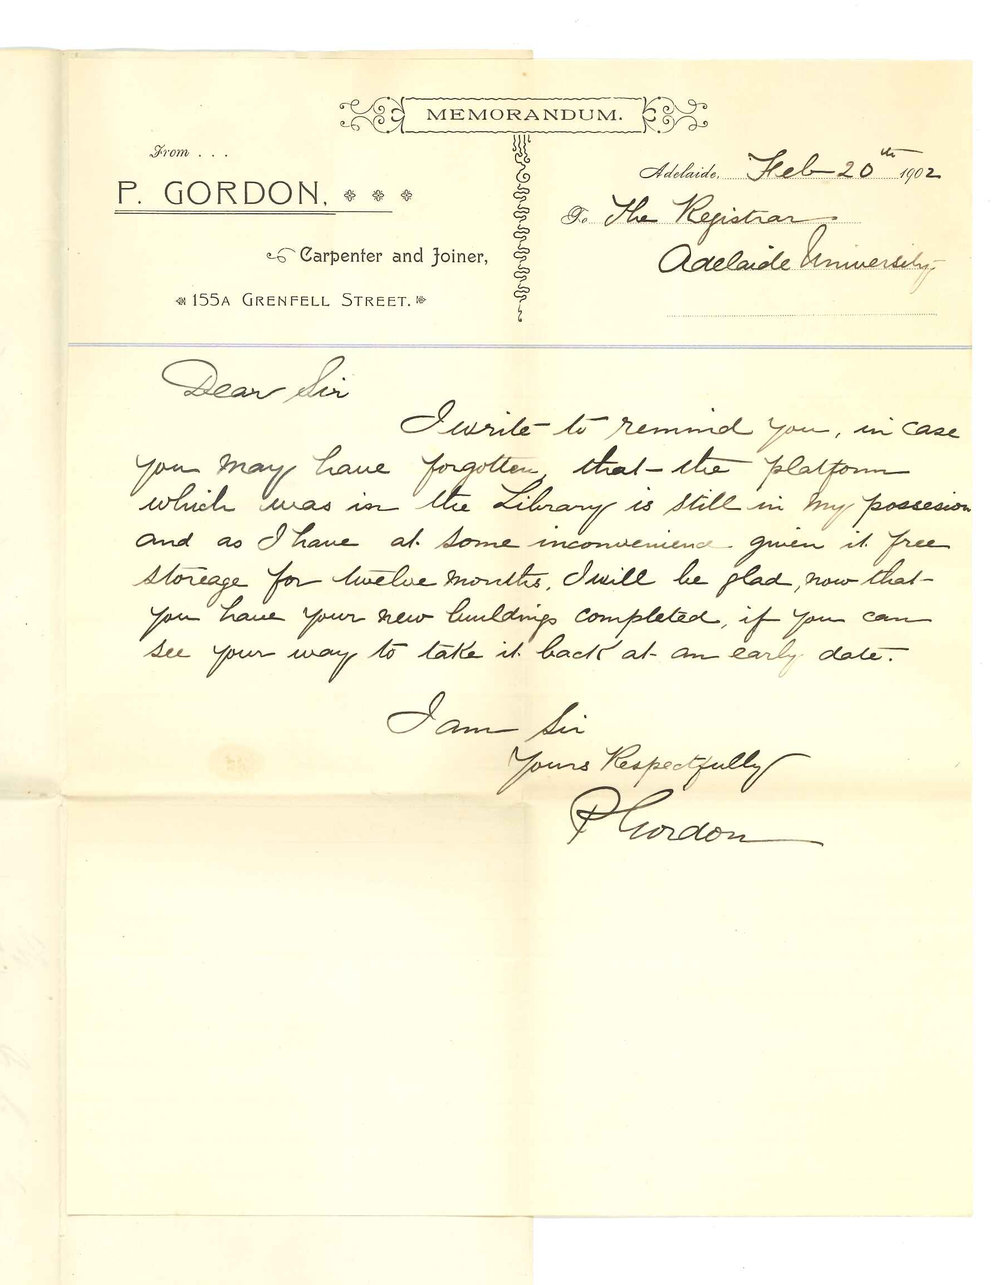 MEMORANDUM.
From . . .
P. GORDON,
Carpenter and Joiner,
155A GRENFELL STREET.
Adelaide, Feb 20th 1902
To The Registrar
Adelaide University
Dear Sir
I write to remind you, in case
you may have forgotten, that the platform
which was in the Library is still in my possesion
and as I have at some inconvenience given it free
storeage for twelve months, I will be glad, now that
you have your new buildings completed, if you can
see your way to take it back at an early date.
I am Sir
Yours Respectfully
P Gordon